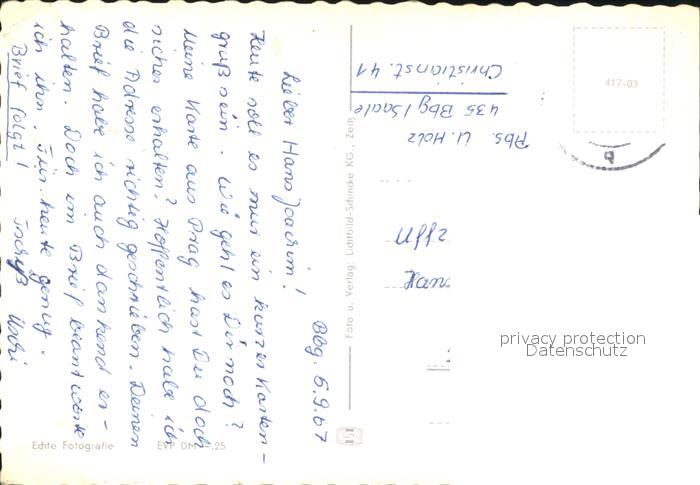 Bbg. 5.9.67
Lieber Hans Joachim!
Heute soll es nur ein kurzer Karten-
gruß sein. Wie geht es Dir noch?
Meine Karte aus Prag hast Du doch
sicher erhalten? Hoffentlich habe ich
die Adresse richtig geschrieben. Deinen
Brief habe ich auch dankend er-
halten. Doch im Brief beantworte
ich ihn. Für heute genug.
Brief folgt! Tschüß
Abs. U. Holz
435 Bbg/Saale
Christianst. 41
Foto u. Verlag: Lichtbild-Schincke KG., Zeitz
Echte Fotografie EVP DM -.25
417-03
privacy protection
Datenschutz